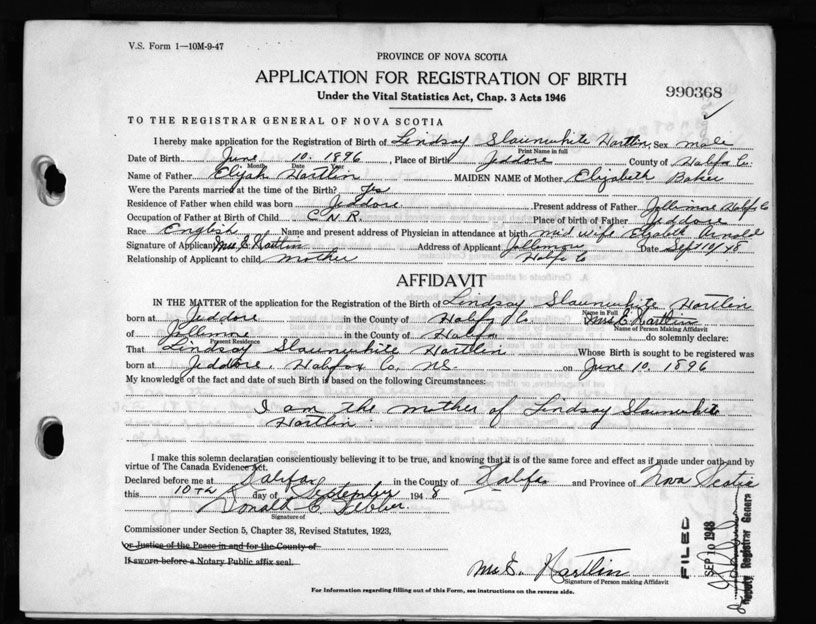 V.S. Form 1—10M-9-47
PROVINCE OF NOVA SCOTIA
APPLICATION FOR REGISTRATION OF BIRTH
Under the Vital Statistics Act, Chap. 3 Acts 1946
990368
TO THE REGISTRAR GENERAL OF NOVA SCOTIA
I hereby make application for the Registration of Birth of Lindsay Slaunwhite Hartlin, Sex male
Print Name in full
Date of Birth June 10. 1896, Place of Birth Jeddore County of Halifax Co.
Month Date Year
Name of Father Elijah Hartlin MAIDEN NAME of Mother Elizabeth Baker
Were the Parents married at the time of the Birth? Yes
Residence of Father when child was born Jeddore Present address of Father Jollimore Halifx Co
Occupation of Father at Birth of Child C.N.R. Place of birth of Father Jeddore
Race English Name and present address of Physician in attendance at birth mid wife Elizabeth Arnold
Signature of Applicant Mrs E Hartlin Address of Applicant Jollimore Date Sept 10/48
Relationship of Applicant to child mother Halifx Co
AFFIDAVIT
IN THE MATTER of the application for the Registration of the Birth of Lindsay Slaunwhite Hartlin
Name in Full
born at Jeddore in the County of Halifx Co. Mrs E Hartlin
Name of Person Making Affidavit
of Jollimore in the County of Halifax do solemnly declare:
Present Residence
That Lindsay Slaunwhite Hartlin Whose Birth is sought to be registered was
born at Jeddore, Halifax Co, N.S. on June 10, 1896
My knowledge of the fact and date of such Birth is based on the following Circumstances:
I am the mother of Lindsay Slaunwhite
Hartlin
I make this solemn declaration conscientiously believing it to be true, and knowing that it is of the same force and effect as if made under oath and by
virtue of The Canada Evidence Act.
Declared before me at Halifax in the County of Halifax and Province of Nova Scotia
this 10th day of September 1948
Donald C.
Signature of
Commissioner under Section 5, Chapter 38, Revised Statutes, 1923,
or Justice of the Peace in and for the County of
If sworn before a Notary Public affix seal.
Mrs E. Hartlin
Signature of Person making Affidavit
For Information regarding filling out of this Form, see instructions on the reverse side.
FILED
SEP 10 1948
Deputy Registrar General